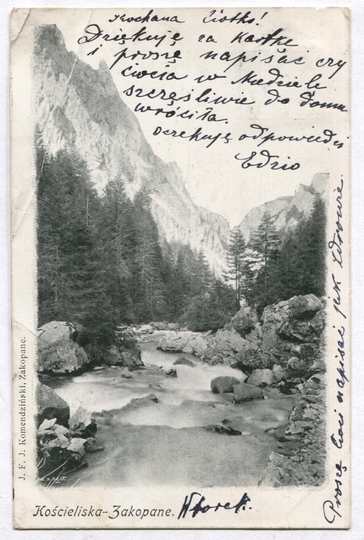 Kochana Ciotko!
Dziękuję za kartkę
i proszę napisać czy
ciocia w Niedzielę
szczęśliwie do domu
wróciła.
Oczekuję odpowiedzi
Edzio
Proszę Cioci napisać jak zdrowie.
J. F. J. Komendziński, Zakopane.
Kościeliska-Zakopane. Wtorek.